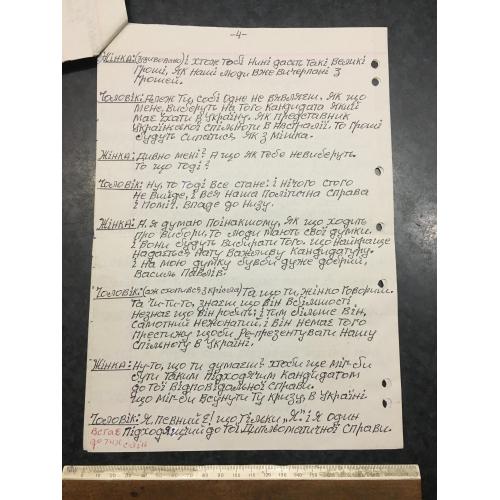 -4-
Жінка: (здивовано) і хтож тобі нині дасть такі великі
гроші, як наші люди вже вичерпані з
грошей.
Чоловік: Але ж ти, собі одне не вявляєш. Як що
мене, виберуть на того кандидата який
має їхати в Україну. Як представник
української спільноти в Австралії. То гроші
будуть сипатися, як з мішка.
Жінка: Дивно мені? А що як тебе невиберуть.
То що тоді?
Чоловік: Ну, то тоді все стане: і нічого стого
не вийде, і вся наша політична справа
і поміч. Впаде до низу.
Жінка: А, я думаю поінакшому, як що ходить
про вибори, то люди мають свої думки.
і вони будуть вибирати того. що найкраще
надається на ту важливу кандидатуру.
і на мою думку бувби дуже добрий
Василь Павлів.
Чоловік: (аж схопився з крісла) Та що ти, жінко говориш.
Та чи-ти-то, знаєш що він в більшості
незнає що він робить: і тим більше він,
самотний нежонатий. і він немає того
престижу щоби репрезентувати нашу
спільноту в Україні.
Жінка: Ну-то, що ти думаєш? хтоби ще міг-би
бути таким підходячим кандидатом
до тої відповідальної справи.
що міг-би всунути ту кризу, в Україні
Чоловік: Я, певний є! що тільки „Я". і я один
підходящий до тої дитявоматичної справи.
встає
до тих
слів